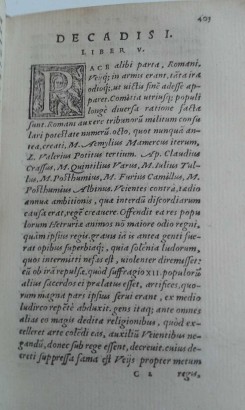 403
DECADIS I.
LIBER V.
PACE alibi parta, Romani,
Veijq; in armis erant, tāta ira
odioq; ut uictis finē adesse app
pareret. Comitia utriusq; populi
longe diuersa ratione facta
sunt. Romani auxere tribunorū militum consu
lari potestate numerū. octo, quot nunquā an
tea, creati, M. Aemylius Mamercus iterum,
L. Valerius Potitus tertium. Ap. Claudius
Crassus, M. Quintilius Varus, M. Iulius Fu
lus, M. Posthumius, M. Furius Camillus, M.
Posthumius Albinus. Veientes contrà, tædio
annuæ ambitionis, quæ interdū discordiarum
causa erat, regē creauere. Offendit ea res popu
lorum Hetruriæ animos no maiore odio regni,
quàm ipsius regis. grauis iam is antea genti fue
rat opibus superbiaq; quia solēnia ludorum,
quos intermitti nefas est, uiolenter diremisset:
cū ob irā repulsæ, quòd suffragio XII. populorū
alius sacerdos ei prælatus esset, artifices, quo
rum magna pars ipsius serui erant, ex medio
ludicro repētè abduxit. gens itaq; ante omnes
alias eo magis dedita religionibus, quòd ex
celleret arte colēdi eas, auxiliū Veientibus ne
gandū, donec sub rege essent, decreuit. cuius de
creti suppressa fama est Veijs propter metum
C 2 regis,